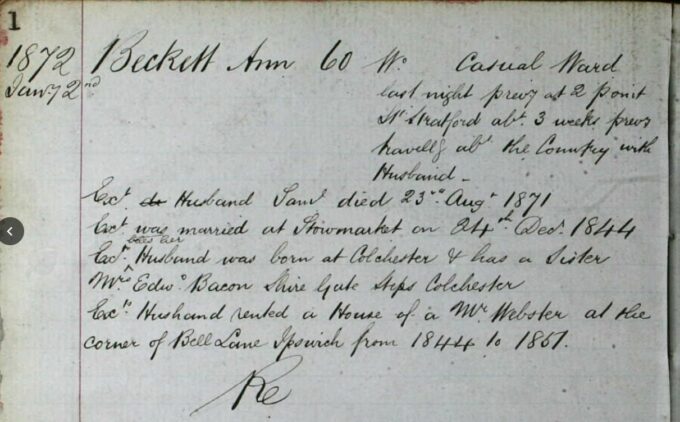 1
1872 Beckett Ann 60 Wo Casual Ward
Jany 2nd last night prevy at 2 Point
St Stratford abt 3 weeks prevy
travellg abt the Country with
Husband -
Ext Husband Saml died 23rd Augt 1871
Ext was married at Stowmarket on 24th Decr 1844
Exts Husband was born at Colchester & has a Sister
Mrs Edwd Bacon Shire Gate Steps Colchester
Exts Husband rented a House of a Mr Webster at the
corner of Bell Lane Ipswich from 1844 to 1851.